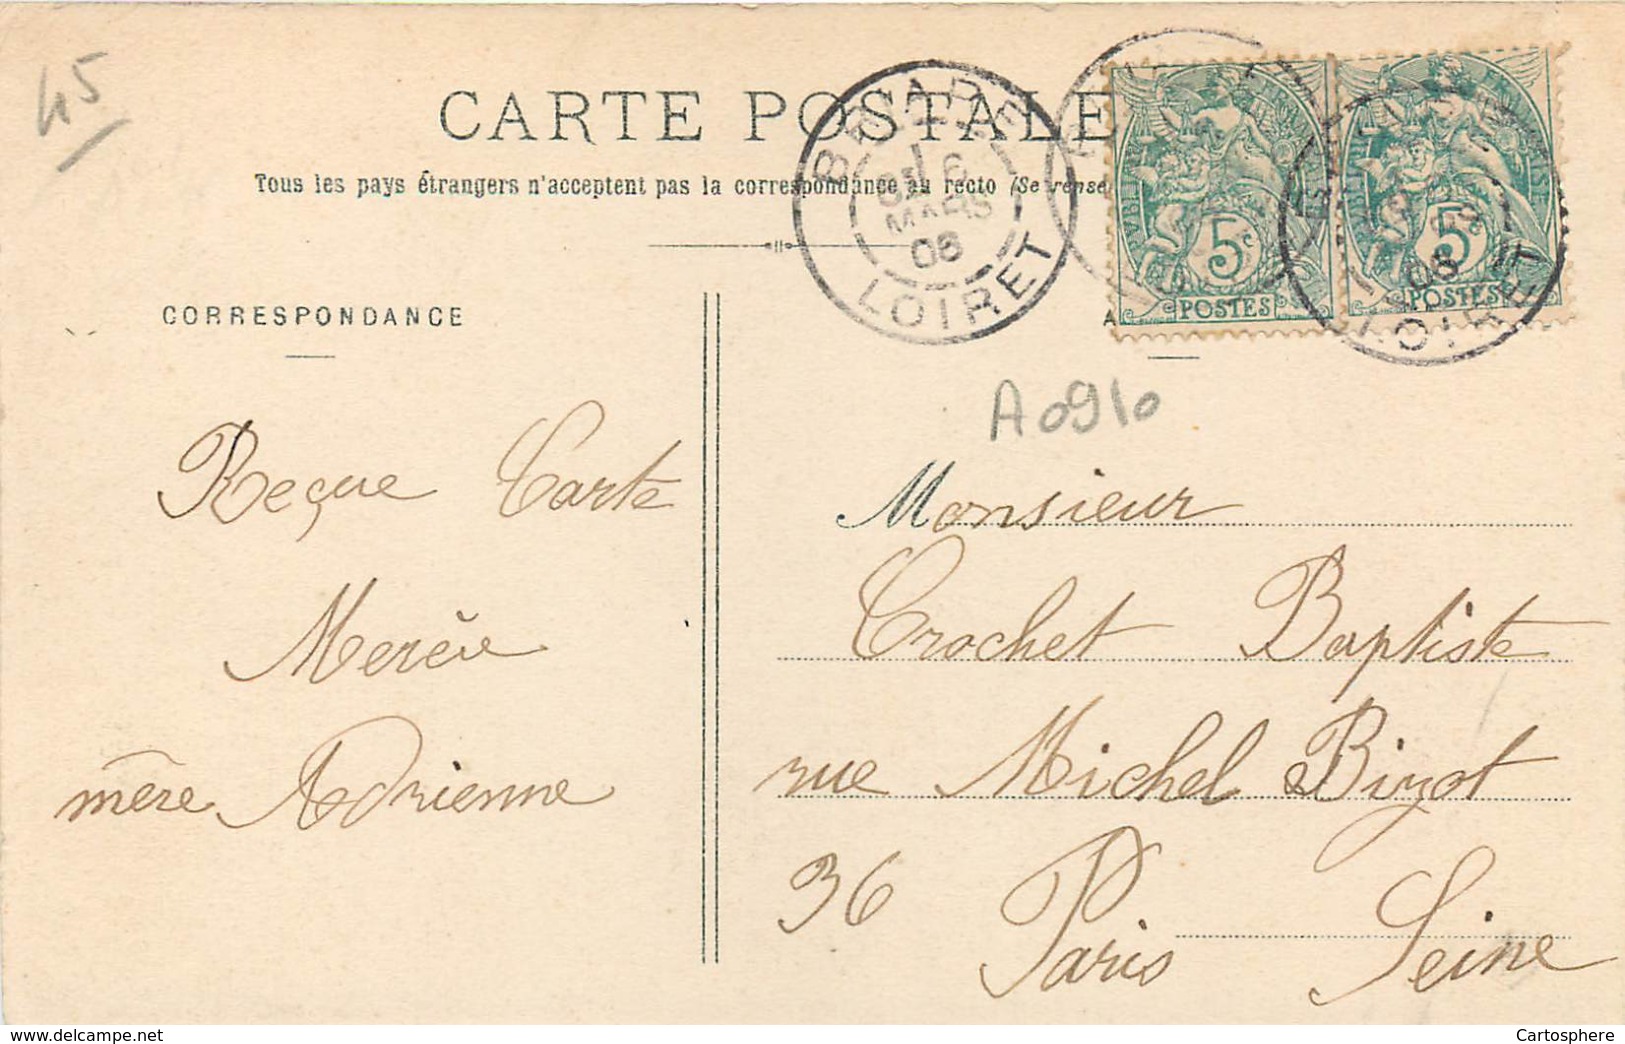 45
CARTE POSTALE
Tous les pays étrangers n'acceptent pas la correspondance au recto (Se rense
BRIARE
6
MARS
06
LOIRET
5c
POSTES
5c
POSTES
06
LOIRET
CORRESPONDANCE
A
A0910
Reçue Carte
Mercie
mère Adrienne
Monsieur
Crochet Baptiste
rue Michel Bizot
36 Paris Seine
www.delcampe.net
Cartosphere